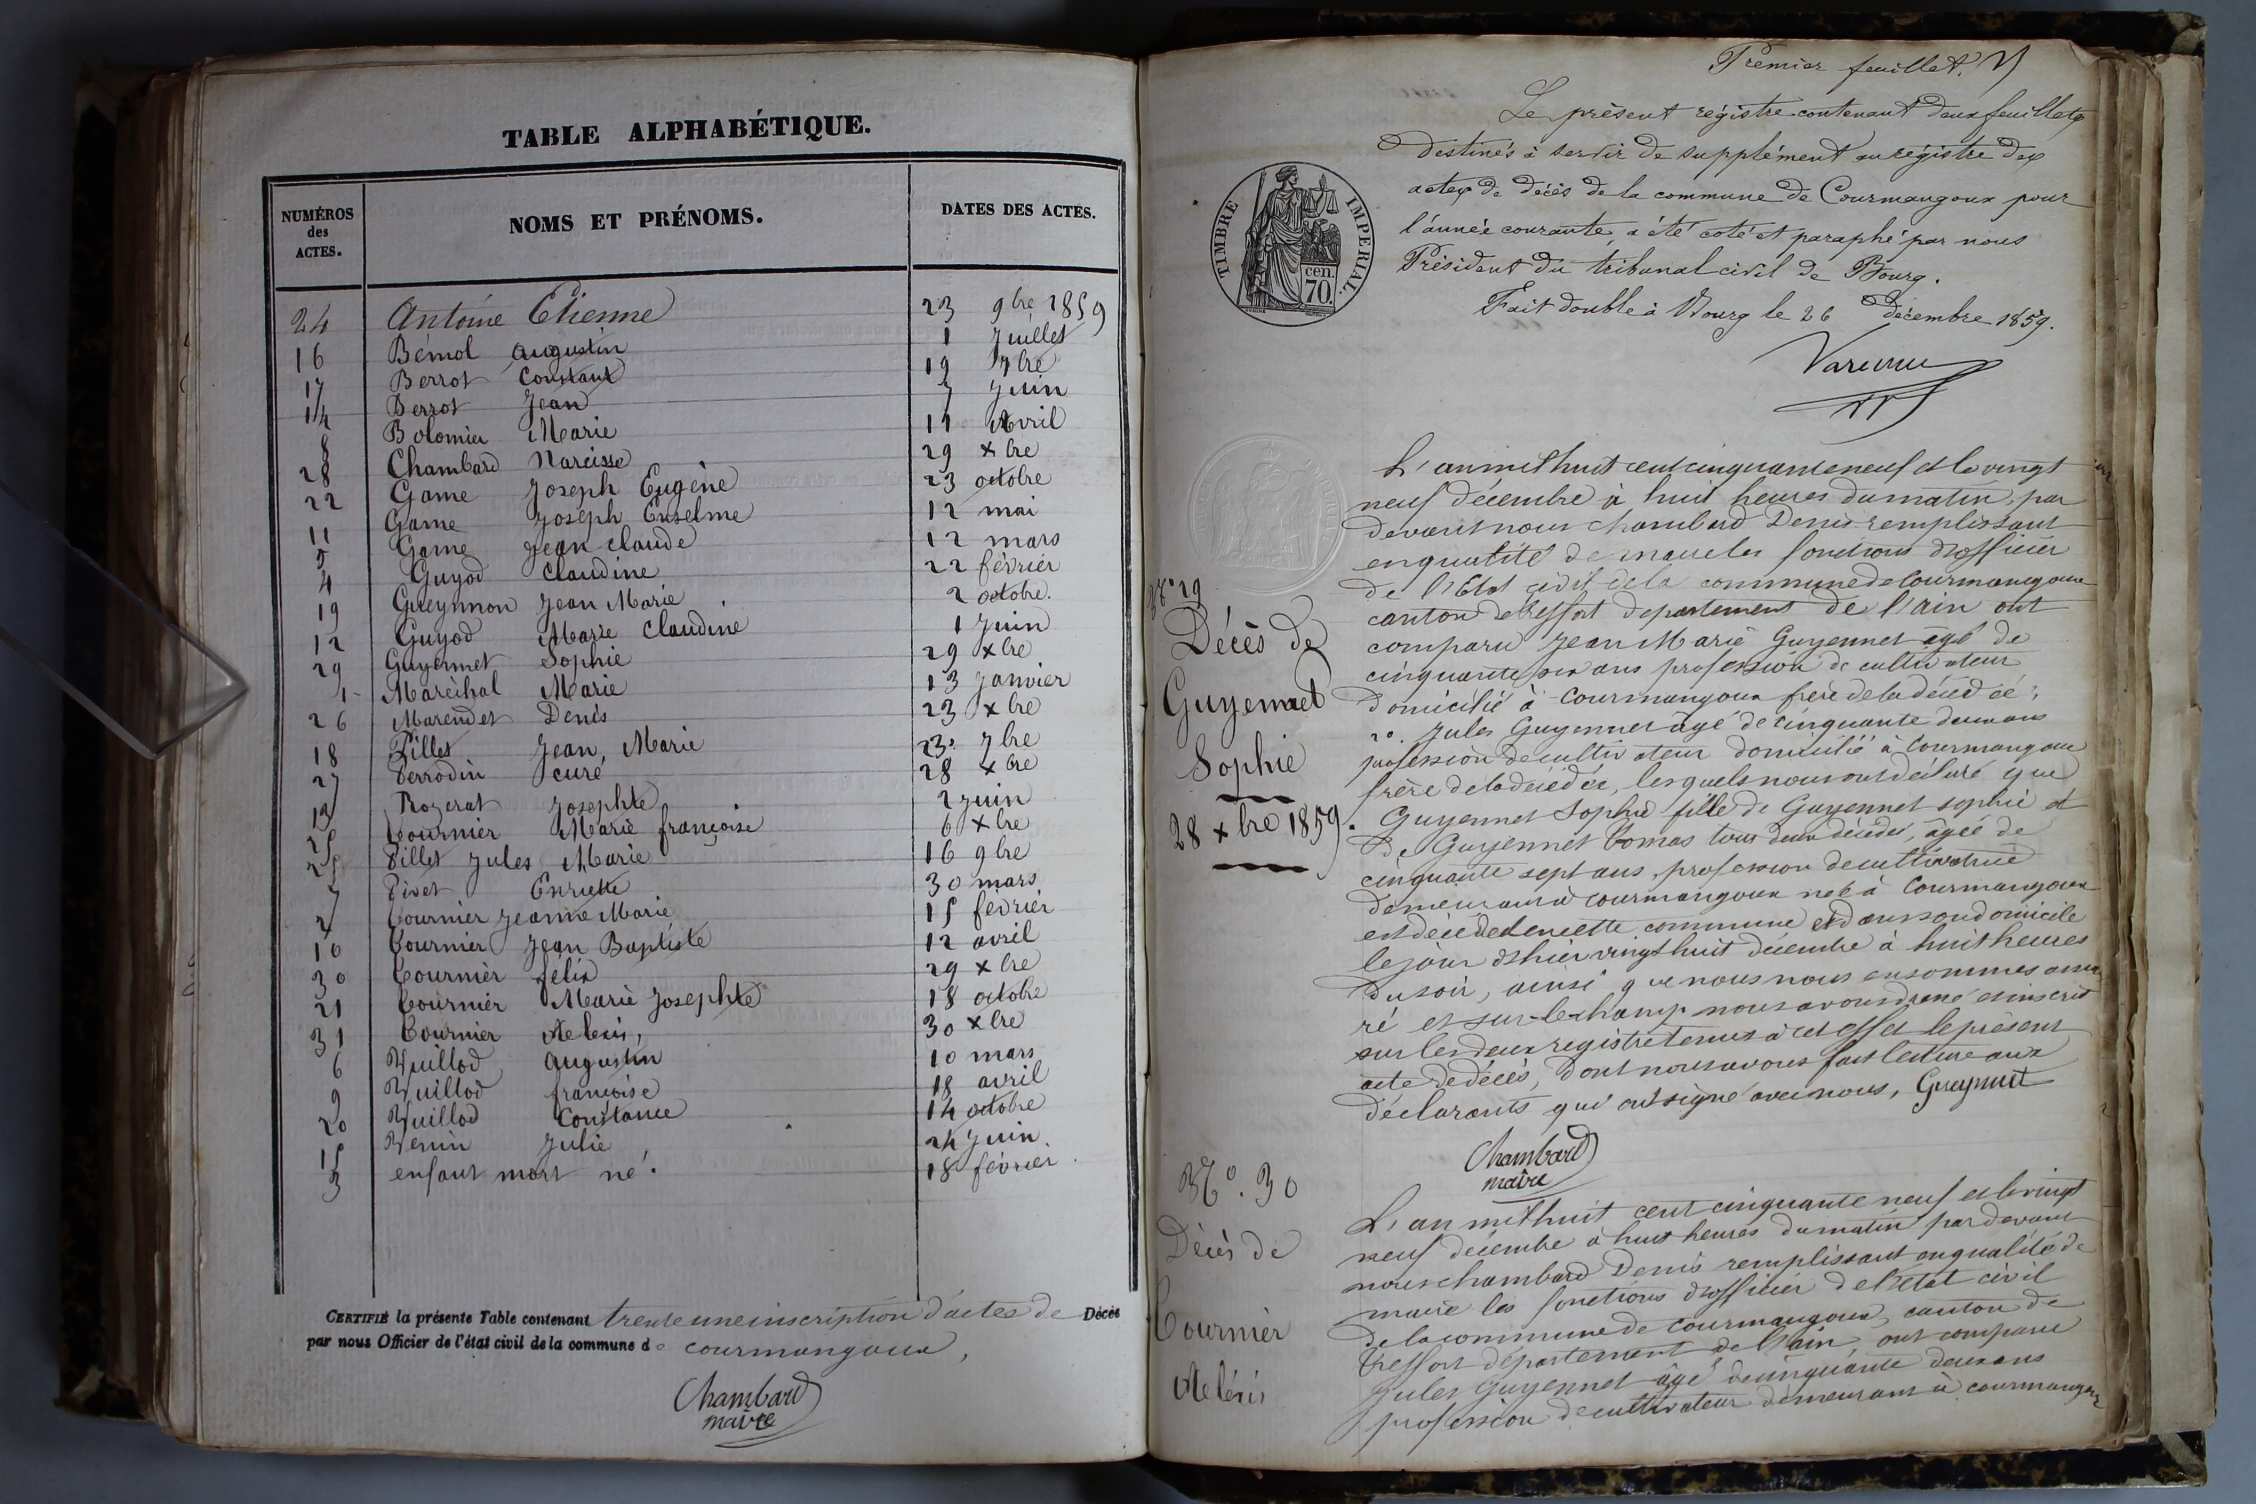 TABLE ALPHABÉTIQUE.
NUMÉROS des ACTES.
NOMS ET PRÉNOMS.
DATES DES ACTES.
24 Antoine Etienne 23 9bre 1859
16 Bémol Augustin 1 Juillet
17 Berrot Constant 19 7bre
14 Berrot Jean 7 Juin
8 Bolomier Marie 11 Avril
28 Chambard Narcisse 29 xbre
22 Game Joseph Eugène 23 octobre
11 Game Joseph Enselme 12 mai
5 Game Jean Claude 12 mars
4 Guyod Claudine 22 février
19 Gueynnon Jean Marie 2 octobre.
12 Guyod Marie Claudine 1 Juin
29 Guyennet Sophie 29 xbre
1 Maréchal Marie 13 Janvier
26 Marendet Denis 23 xbre
18 Pillet Jean Marie 23 7bre
27 Perrodin curé 28 xbre
13 Rozerat Josephte 2 Juin
25 Tournier Marie françoise 6 xbre
Pillet Jules Marie 16 9bre
7 Pivet Enriette 30 mars
2 Tournier Jeanne Marie 15 février
10 Tournier Jean Baptiste 12 avril
30 Tournier félix 29 xbre
21 Tournier Marie Josephte 18 octobre
31 Tournier Alexis, 30 xbre
6 Vuillod Augustin 10 mars
9 Vuillod françoise 18 avril
20 Vuillod Constance 14 octobre
15 Venin Julie 24 Juin
3 enfant mort né. 18 février
CERTIFIÉ la présente Table contenant trente une inscription d'actes de Décès
par nous Officier de l'état civil de la commune de courmangoux,
Chambard
maire
Premier feuillet.
Le présent régistre contenant deux feuillets
destinés à servir de supplément au régistre des
actes de décès de la commune de Courmangoux pour
l'année courante, a été coté et paraphé par nous
Président du tribunal civil de Bourg.
Fait double à Bourg le 26 Décembre 1859.
TIMBRE IMPERIAL.
cen.
70.
L'an mil huit cent cinquante neuf et le vingt
neuf décembre à huit heures du matin, par
devant nous Chambard Denis remplissant
en qualité de maire les fonctions d'officier
de l'Etat civil de la commune de Courmangoux
canton de treffort departement de l'ain ont
comparu Jean Marie Guyennet âgé de
cinquante six ans profession de cultivateur
domicilié à Courmangoux frère de la décédée;
2º. Jules Guyennet âgé de cinquante deux ans
profession de cultivateur domicilié à Courmangoux
frère de la décédée, lesquels nous ont déclaré que
Guyennet Sophie fille de Guyennet sophie et
de Guyennet Tomas tous deux décédés, âgée de
cinquante sept ans, profession de cultivatrice
demeurant à courmangoux née à Courmangoux
est décédée en cette commune et dans son domicile
le jour d'hier vingt huit decembre à huit heures
du soir, ainsi que nous nous en sommes assu
ré et sur-le-champ nous avons dressé et inscrit
sur les deux registre tenus à cet effet le présent
acte de décès, dont nous avons fait lecture aux
déclarants qui ont signé avec nous, Gueynnet
Chambard
maire
Nº 29
Décès de
Guyennet
Sophie
28 xbre 1859.
Nº. 30
Décès de
Tournier
Alexis
L'an mil huit cent cinquante neuf et le vingt
neuf décembre à huit heures du matin par devant
nous chambard Denis remplissant en qualité de
maire les fonctions d'officier de l'état civil
de la commune de courmangoux, canton de
treffort département de l'ain, ont comparu
Jules Guyennet âgé de cinquante deux ans
profession de cultivateur demeurant à courmangoux